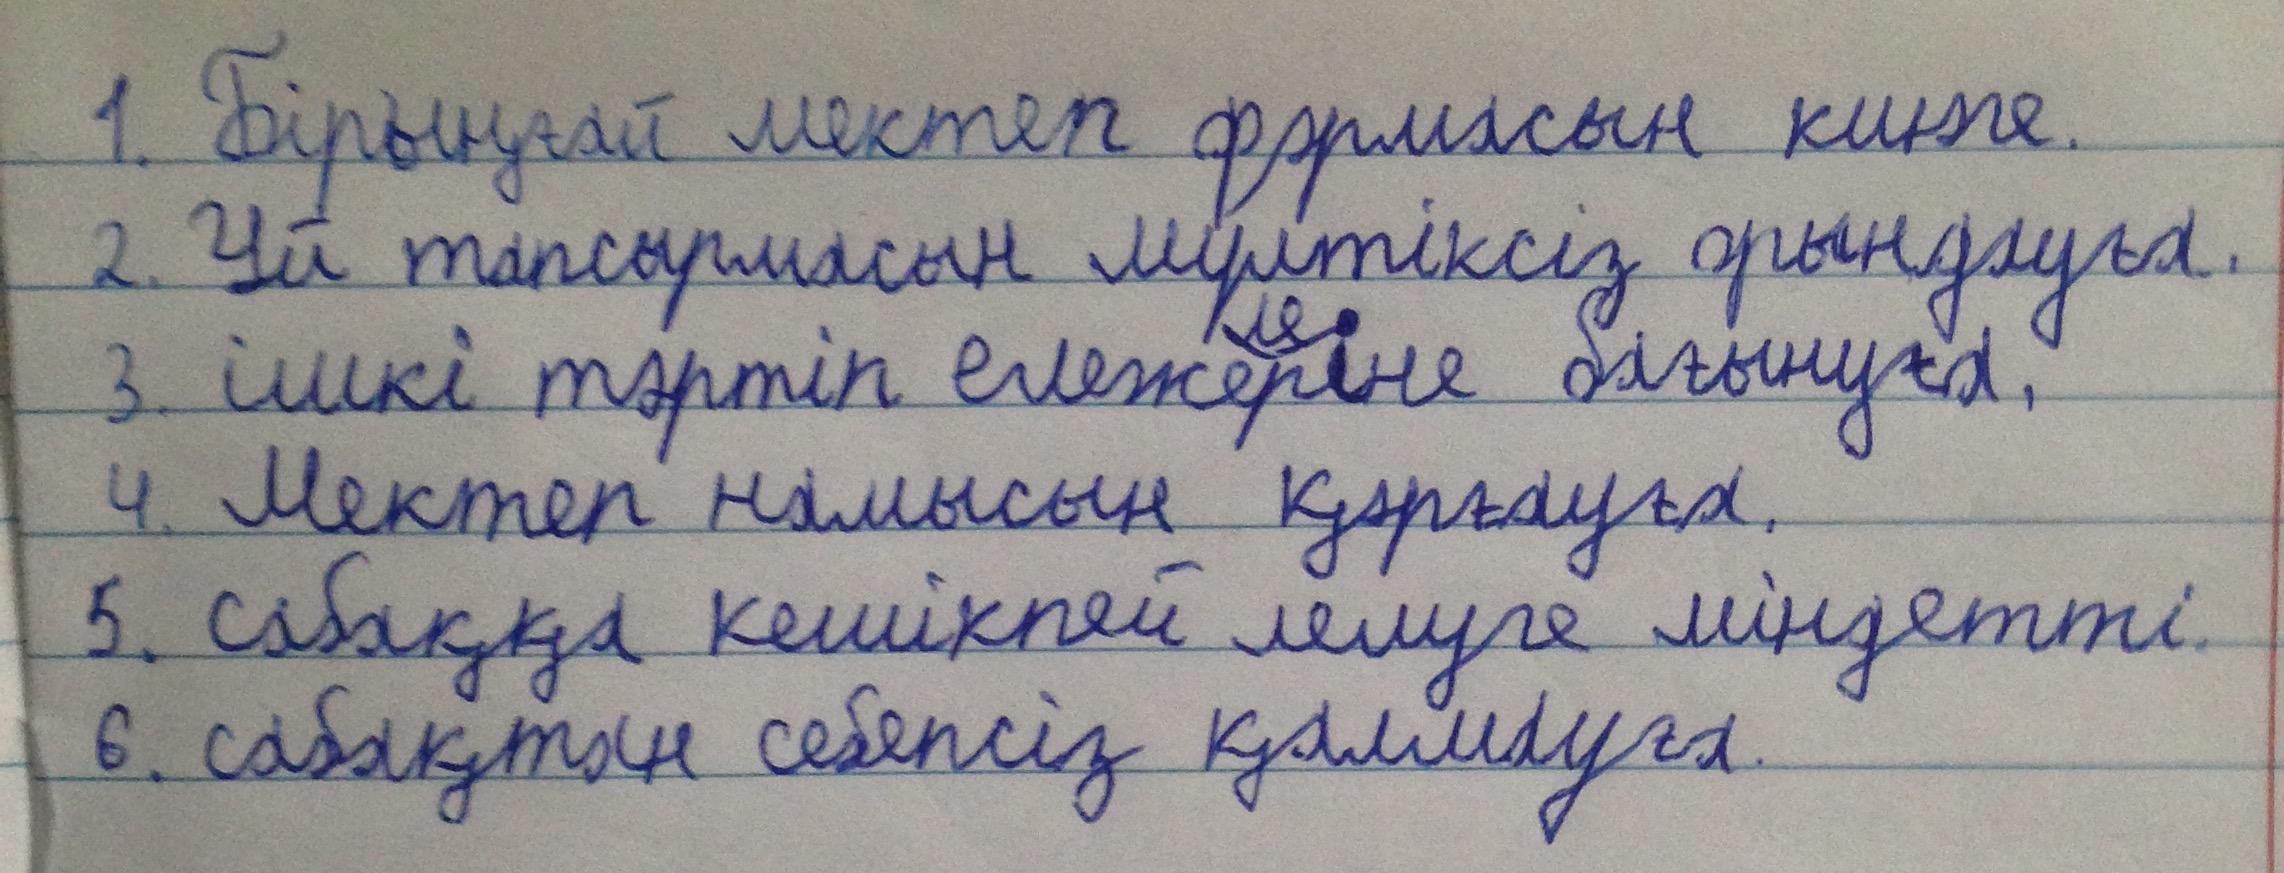 1. Бірыңғай мектеп формасын киюге.
2. Үй тапсырмасын мүлтіксіз орындауға.
3. ішкі тәртіп ележелеріне бағынуға,
4. Мектеп намысын қорғауға.
5. сабаққа кешікпей лелуге міндетті.
6. сабақтан себепсіз қалмауға.